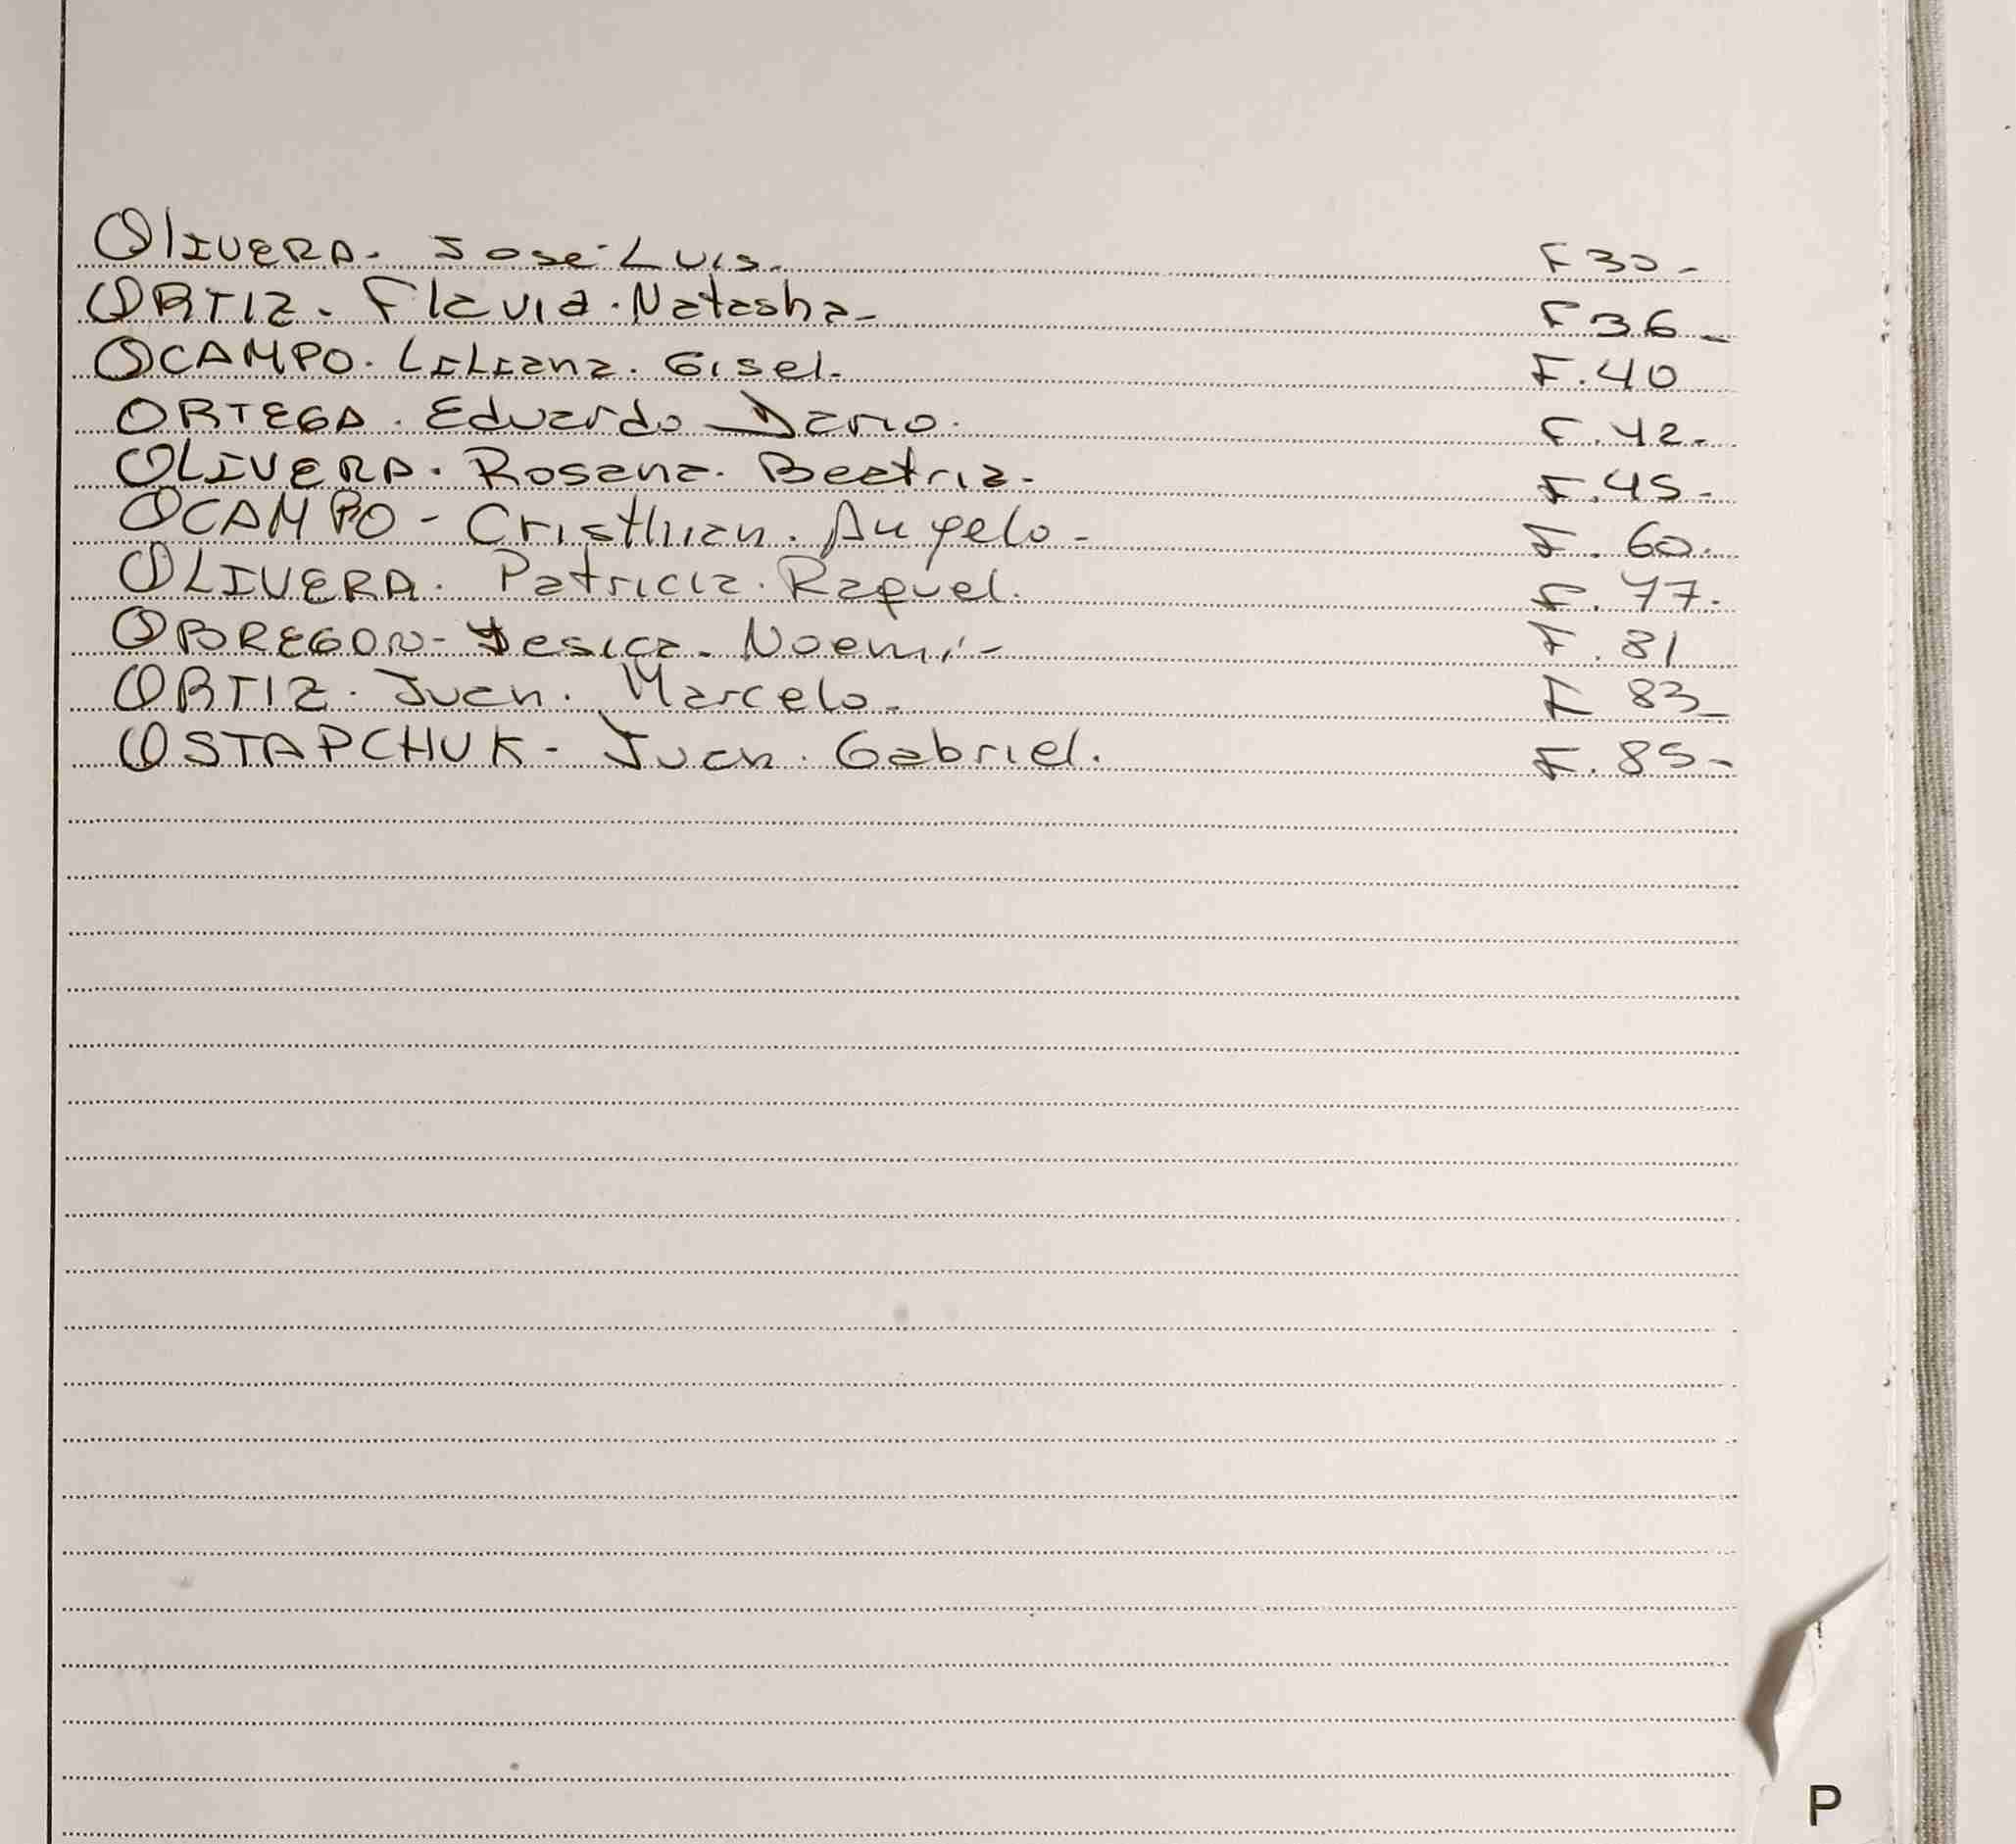 OlIVERA. José Luis. F 30-
ORTIZ. Flavia. Natasha- F 36-
OCAMPO. LiLiana. Gisel. F. 40
ORTEGA. Eduardo Dario. F. 42.
OLIVERA. Rosana. Beatriz. F. 45-
OCAMPO - Cristhian. Angelo- F. 60.
OLIVERA. Patricia. Raquel. F. 77.
OBREGON- Jesica. Noemi- F. 81
ORTIZ. Juan. Marcelo. F 83-
OSTAPCHUK- Juan. Gabriel. F. 85-
P